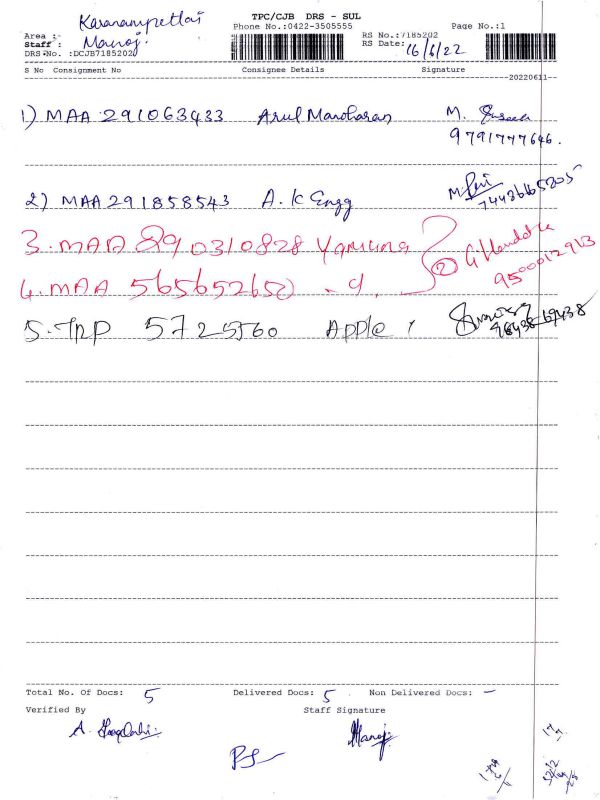 Karanampettai
TPC/CJB DRS - SUL
Page No.:1
Area :-
Phone No.:0422-3505555
RS No.:7185202
Staff : Manoj.
RS Date: 16/6/22
DRS No. :DCJB7185202
S No Consignment No Consignee Details Signature
20220611
1) MAA 291063433 Arul Manoharan M.
9791777646.
2) MAA 291858543 A. K Engg M.
3. MAA 290310828 Yamuna
4. MAA 565652650 - d. 2
9500012913
5. TRP 5725560 Apple
98438 69438
Total No. Of Docs: 5 Delivered Docs: 5 Non Delivered Docs: -
Verified By Staff Signature
A. Manoj